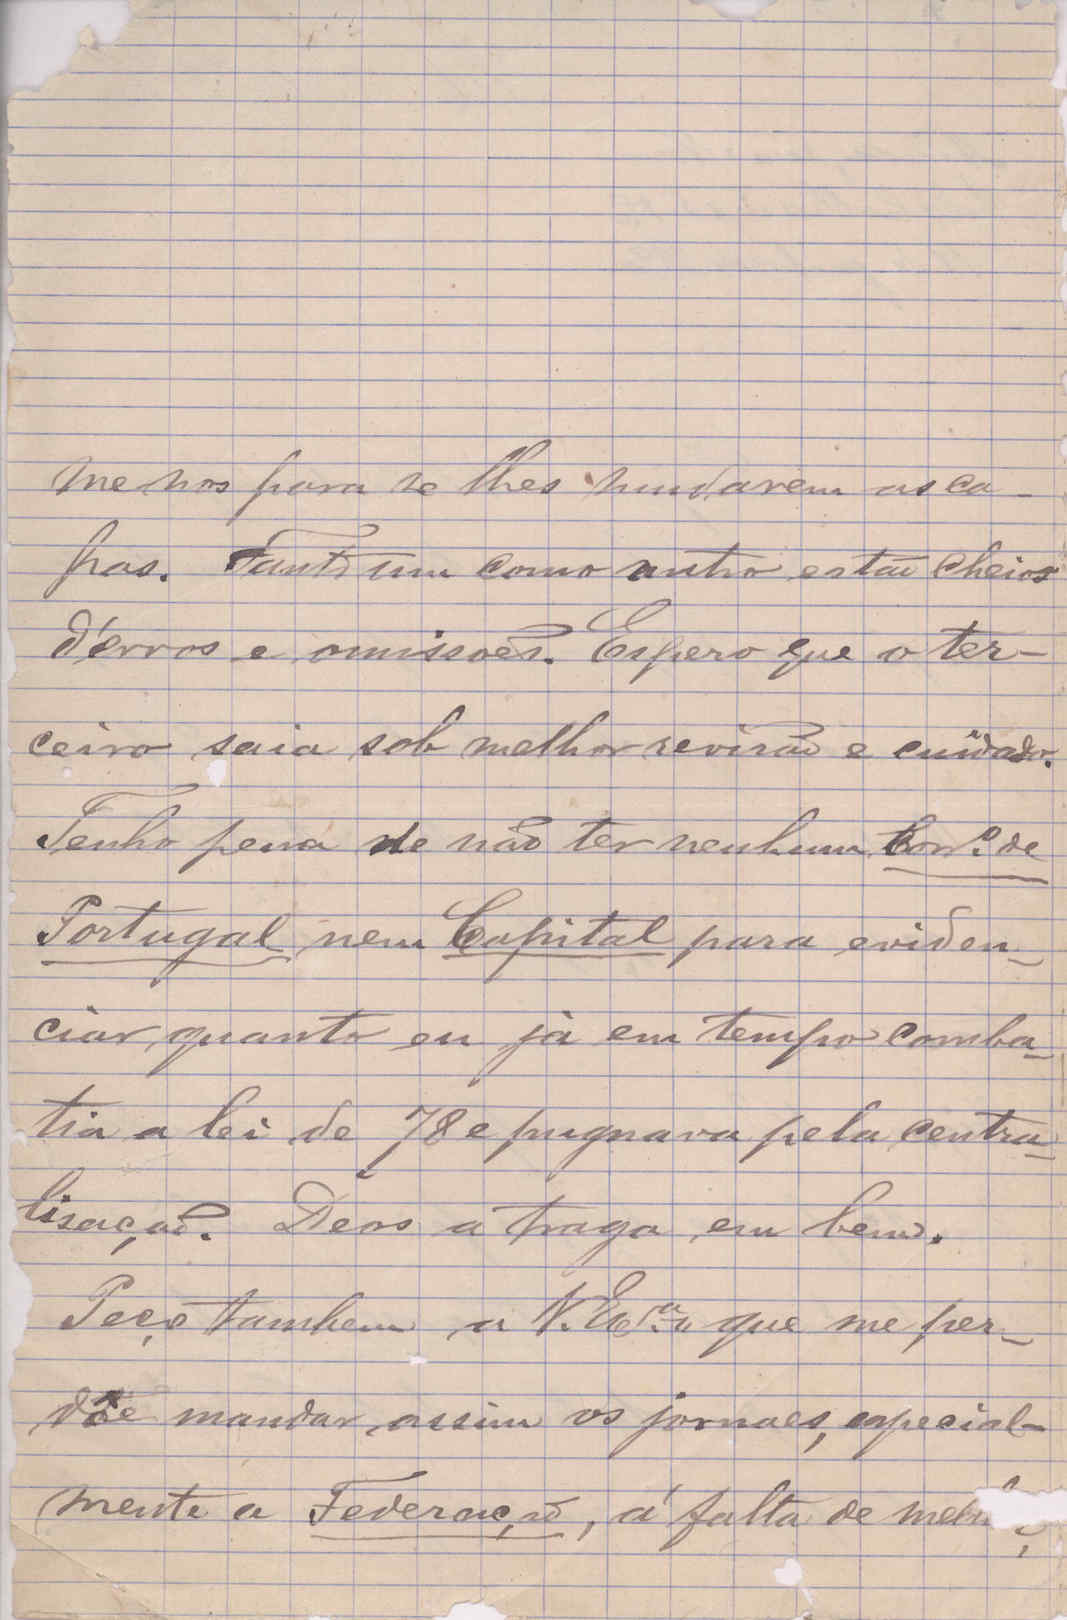 menos para se lhes mudarem as ca-
pas. Tanto um como outro estão cheios
d'erros e omissões. Espero que o ter-
ceiro saia sob melhor revisão e cuidado.
Tenho pena de não ter nenhum Corr.º de
Portugal nem Capital para eviden-
ciar quanto eu já em tempo comba-
tia a lei de 78 e pugnava pela centra-
lisação. Deos a traga em bem.
Peço tambem a V. Ex.ª que me per-
dôe mandar assim os jornaes, especial-
mente a Federação, á falta de